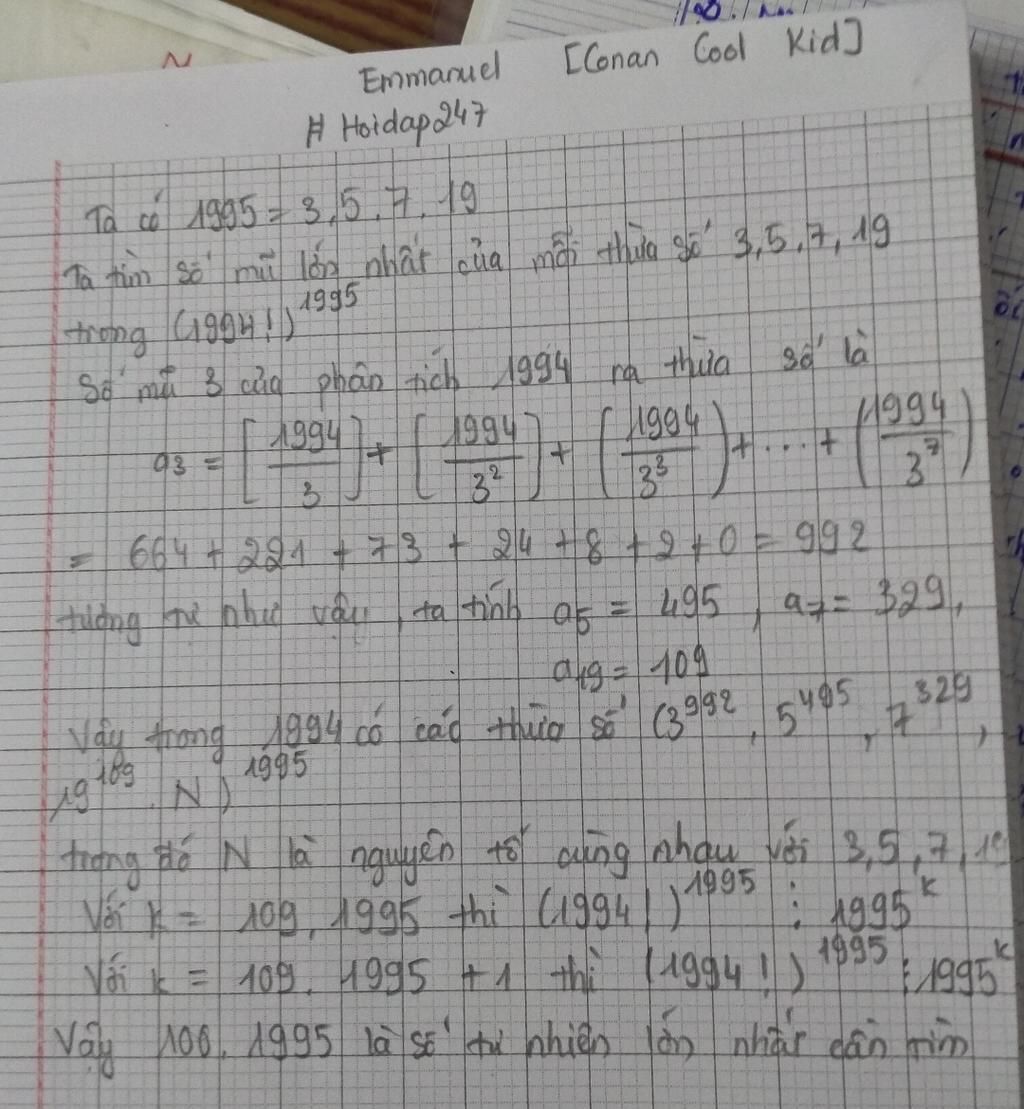 Emmanuel [Conan Cool Kid]
# Hoidap247
Ta có 1995 = 3.5.7.19
Ta tìm số mũ lớn nhất của mỗi thừa số 3,5,7,19
trong (1994!)^1995
Số mũ 3 của phân tích 1994 ra thừa số là
a3 = [1994/3] + [1994/3^2] + [1994/3^3) + ... + (1994/3^7)
= 664 + 221 + 73 + 24 + 8 + 2 + 0 = 992
tương tự như vậy, ta tính a5 = 495, a7 = 329,
a19 = 109
Vậy trong 1994 có các thừa số (3^992, 5^495, 7^329,
19^109. N)^1995
trong đó N là nguyên tố cùng nhau với 3,5,7,19
Với k = 109.1995 thì (1994!)^1995 ⋮ 1995^k
Với k = 109.1995 + 1 thì (1994!)^1995 ⋮ 1995^k
Vậy 106.1995 là số tự nhiên lớn nhất cần tìm